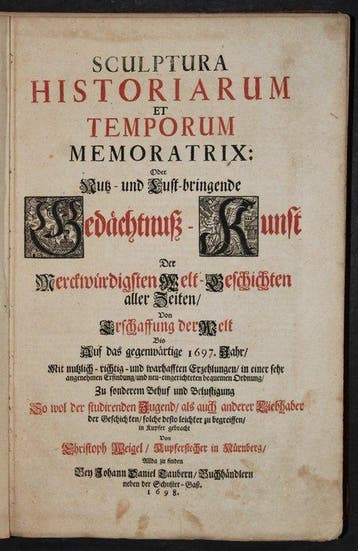 SCULPTURA
HISTORIARUM
ET
TEMPORUM
MEMORATRIX:
Oder
Nutz- und Lust-bringende
Gedächtnuß-Kunst
Der
Merckwürdigsten Welt-Geschichten
aller Zeiten/
Von
Erschaffung der Welt
Bis
Auf das gegenwärtige 1697. Jahr/
Mit nutzlich- richtig- und warhafften Erzehlungen/ in einer sehr
angenehmen Erfindung/und neu-eingerichteten bequemen Ordnung/
Zu sonderem Behuf und Belustigung
So wol der studirenden Jugend/ als auch anderer Liebhaber
der Geschichten/ solche desto leichter zu begreiffen/
in Kupfer gebracht
Von
Christoph Weigel/ Kupferstecher in Nürnberg/
Allda zu finden
Bey Johann Daniel Taubern/ Buchhändlern
neben der Schuster-Gaß.
1698.